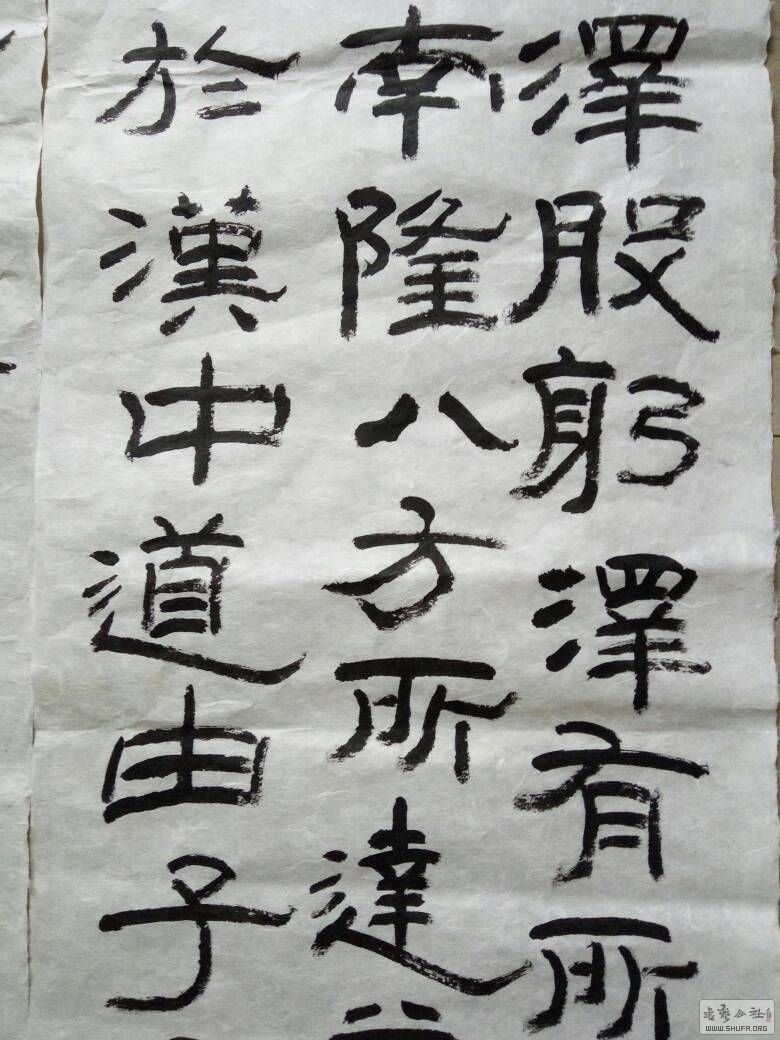 澤股躬澤有所
南隆八方所達
於漢中道由子
書藝公社
WWW.SHUFA.ORG